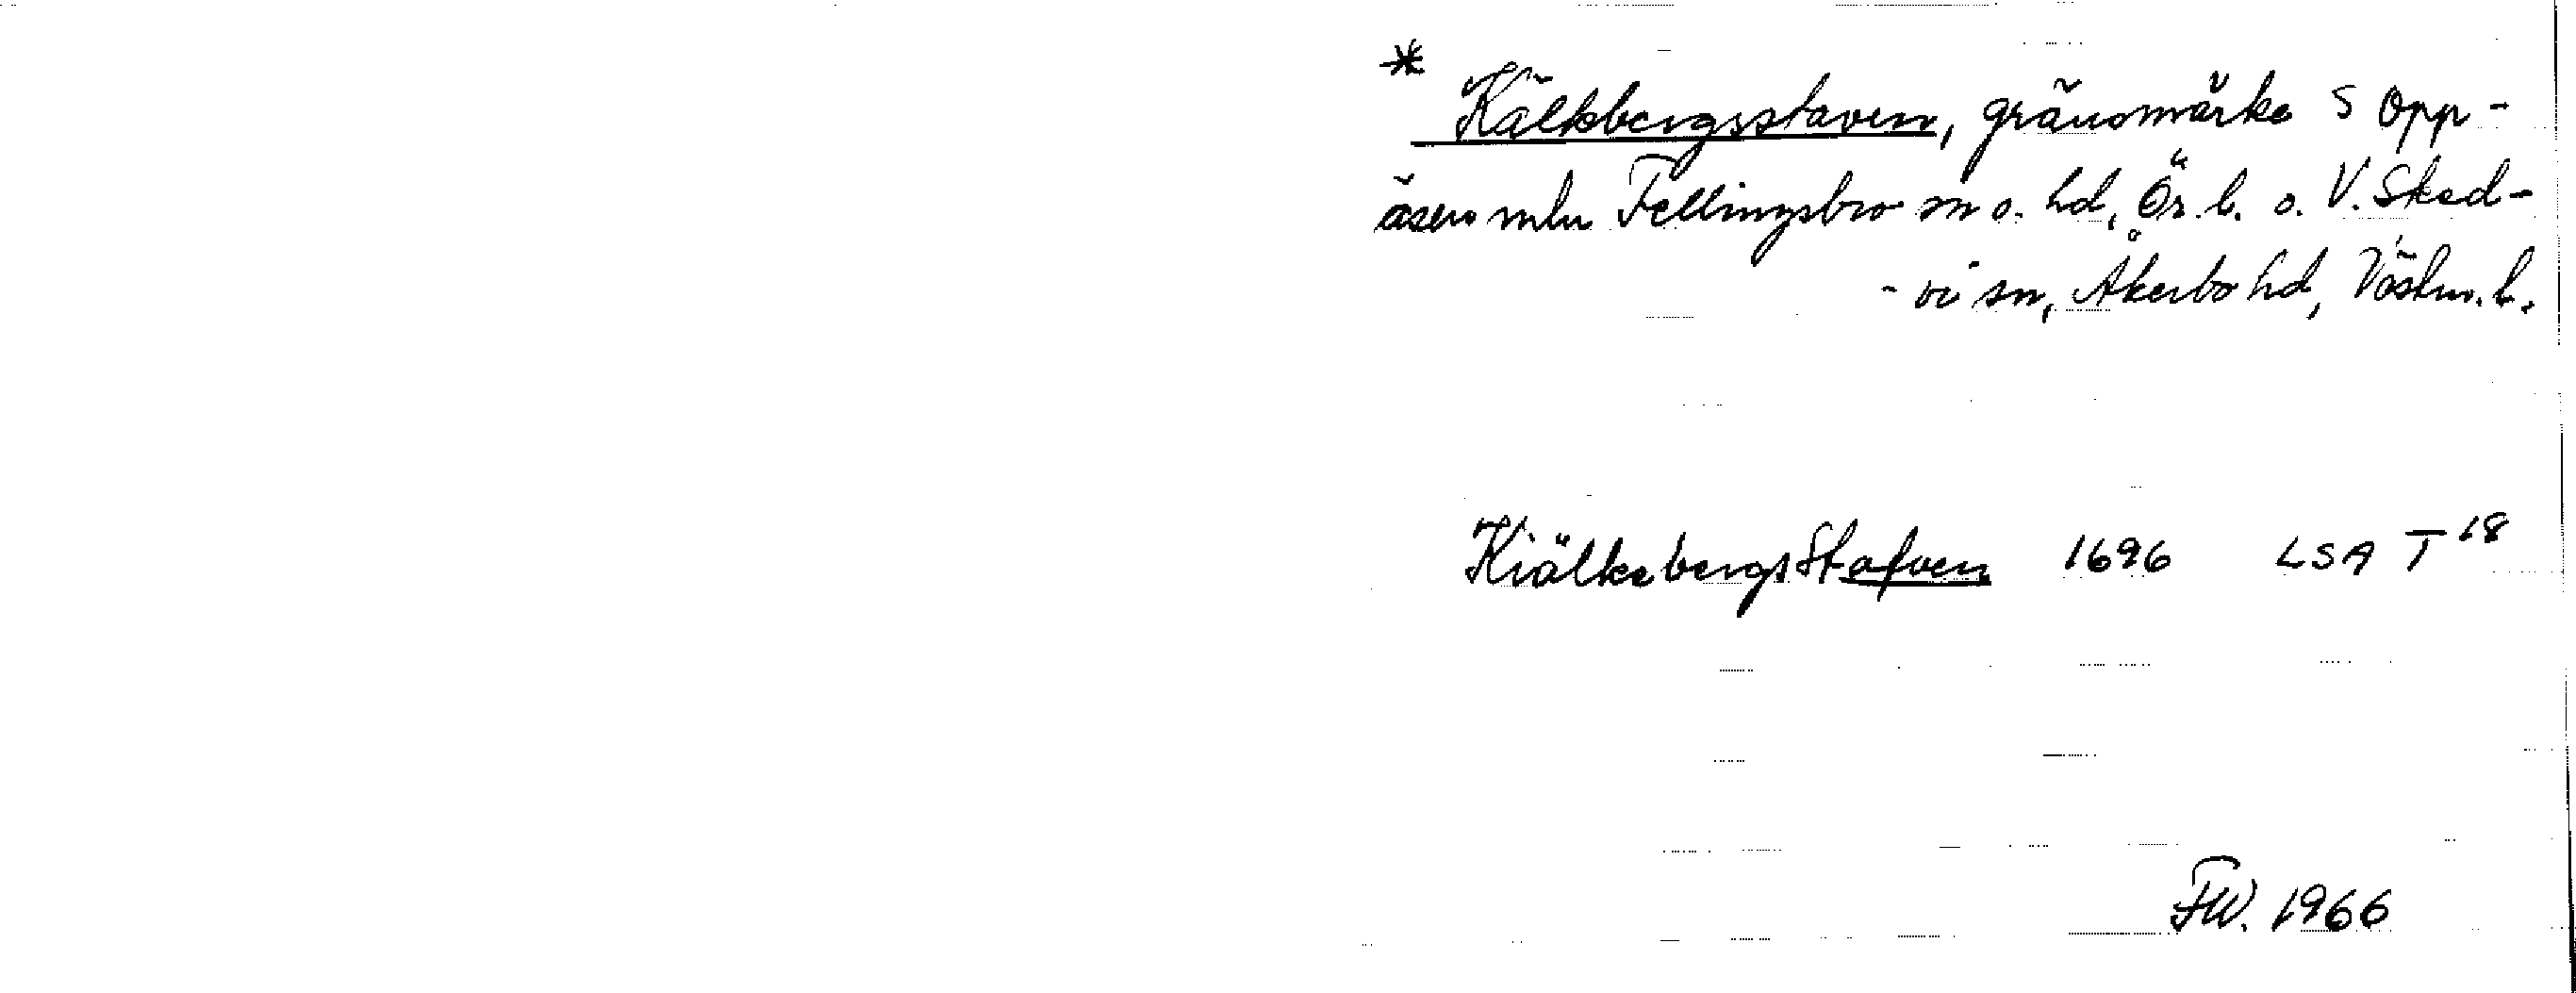 *
Kälkbergsstaven, gränsmärke S Opp-
åsen mln Fellingsbro sn o. hd, Ör. l. o. V. Sked-
- vi sn, Åkerbo hd, Västm. l.
Kiälkebergs Stafven 1696 LSA T 18
FW. 1966